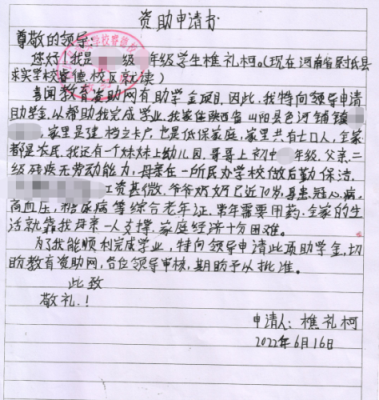 资助申请书
尊敬的领导:
您好!我是 级 年级学生樵礼柯。(现在河南省尉氏县
求实学校睿德校区就读)
喜闻教育资助网有助学金项目,因此,我特向领导申请
助学金,以帮助我完成学业,我家住陕西省山阳县色河铺镇
家里是建档立卡户也是低保家庭。家里共有七口人,全家
都是农民,我还有个妹妹上幼儿园,哥哥上初中 年级。父亲二
级残疾无劳动能力,母亲在一所民办学校做后勤保洁,
工资甚微,爷爷奶奶已近70岁,身患冠心病,
高血压,糖尿病等综合老年证,常年需要用药。全家的生
活就靠我母亲一人支撑,家庭经济十分困难。
为了我能顺利完成学业,特向领导申请此项助学金,切
盼教育资助网,各位领导审核,期盼予以批准。
此致
敬礼!
申请人:樵礼柯
2022年6月16日